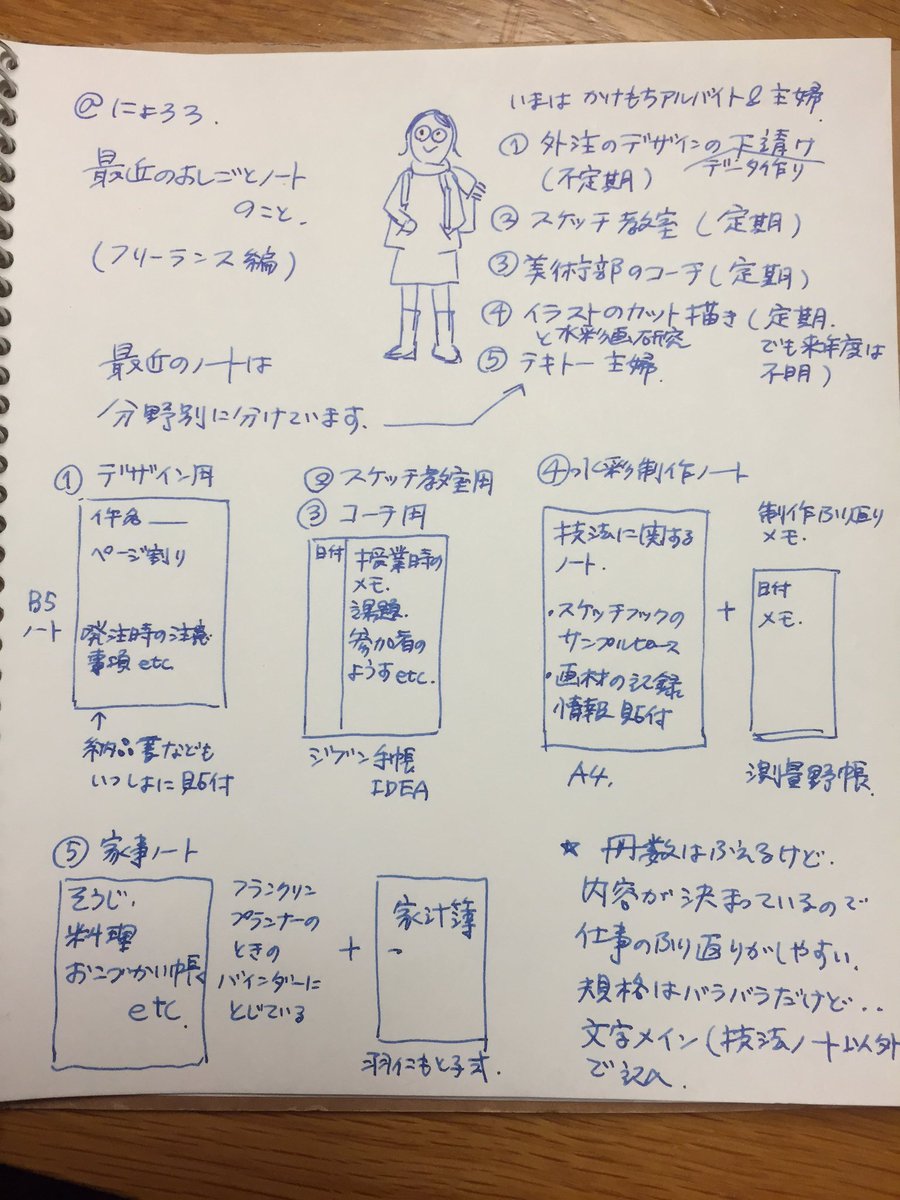 @にょろろ.
最近のおしごとノート
のこと.
(フリーランス編)
いまは かけもちアルバイト& 主婦
① 外注のデザインの下請け
(不定期) データ作り
② スケッチ教室 (定期)
③ 美術部のコーチ(定期)
④ イラストのカット描き(定期.
と水彩画研究 でも来年度は
不明)
⑤ テキトー主婦.
最近のノートは
分野別に分けています.
① デザイン用
件名
ページ割り
発注時の注意
事項 etc.
B5
ノート
↑
納品書なども
いっしょに貼付
② スケッチ教室用
③ コーチ用
日付
授業時の
メモ.
課題.
参加者の
ようすetc.
ジブン手帳
IDEA
④水彩制作ノート
技法に関する
ノート.
・スケッチブックの
サンプルピース
・画材の記録
情報貼付
A4.
+
制作ふり返り
メモ.
日付
メモ.
測量野帳.
⑤ 家事ノート
そうじ.
料理
おこづかい帳
etc.
フランクリン
プランナーの
ときの
バインダーに
とじている
+
家計簿
羽仁もと子式.
★ 冊数はふえるけど.
内容が決まっているので
仕事のふり返りがしやすい.
規格はバラバラだけど..
文字メイン(技法ノート以外
で記入.